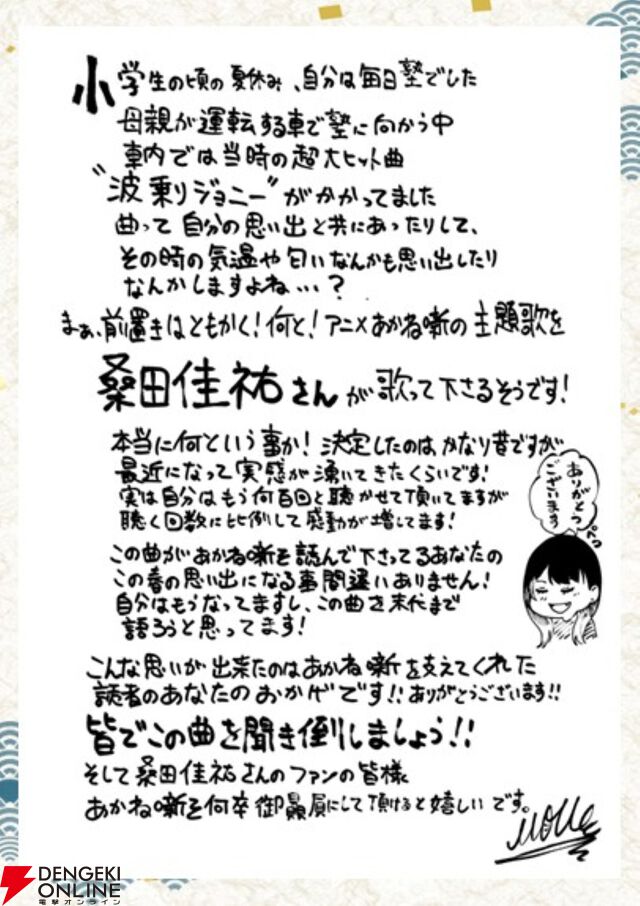 小学生の頃の夏休み、自分は毎日塾でした
母親が運転する車で塾に向かう中
車内では当時の超大ヒット曲
"波乗りジョニー"がかかってました
曲って自分の思い出と共にあったりして、
その時の気温や匂いなんかも思い出したり
なんかしますよね…?
まぁ、前置きはともかく!何と!アニメあかね噺の主題歌を
桑田佳祐さんが歌って下さるそうです!
本当に何という事か!決定したのはかなり昔ですが
最近になって実感が湧いてきたくらいです!
実は自分はもう何百回と聴かせて頂いてますが
聴く回数に比例して感動が増してます!
ありがとう
ございます
ペコ
この曲があかね噺を読んで下さってるあなたの
この春の思い出になる事間違いありません!
自分はもうなってますし、この曲を末代まで
語ろうと思ってます!
こんな思いが出来たのはあかね噺を支えてくれた
読者のあなたのおかげです!!ありがとうございます!!
皆でこの曲を聞き倒しましょう!!
そして桑田佳祐さんのファンの皆様
あかね噺を何卒御贔屓にして頂けると嬉しいです。
DENGEKI
ONLINE
電撃オンライン